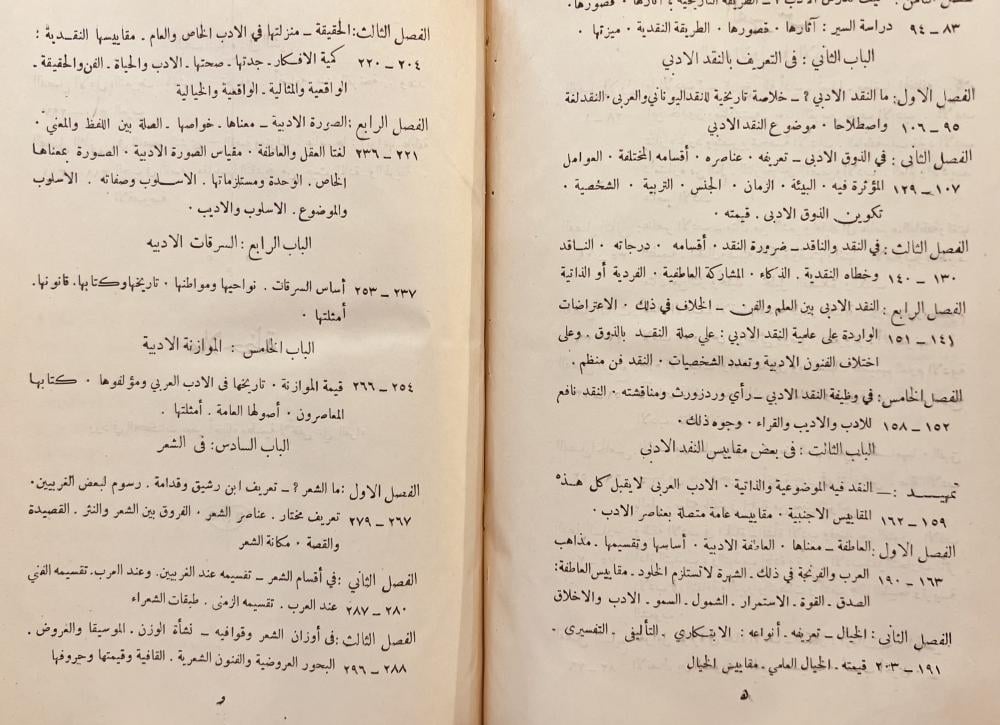 دراسة السير : آثارها · قصورها · الطريقة النقدية · ميزتها · ٨٣ – ٩٤
الباب الثاني : فى التعريف بالنقد الادبي
الفصل الاول : ما النقد الادبي ? – خلاصة تاريخية للنقد اليوناني والعربى · النقد لغة
واصطلاحا · موضوع النقد الادبي ٩٥ – ١٠٦
الفصل الثانى : في الذوق الادبى – تعريفه · عناصره · أقسامه المختلفة · العوامل
المؤثرة فيه · البيئة · الزمان · الجنس · التربية · الشخصية · ١٠٧ – ١٢٩
تكوين الذوق الادبى . قيمته ·
الفصل الثالث : في النقد والناقد – ضرورة النقد · أقسامه · درجاته · الناقد
وخطاه النقدية . الذكاء · المشاركة العاطفية · الفردية أو الذاتية ١٣٠ – ١٤٠
الفصل الرابع : النقد الادبى بين العلم والفن – الخلاف في ذلك · الاعتراضات
الواردة على علمية النقد الادبي : علي صلة النقد بالذوق . وعلى ١٤١ – ١٥١
اختلاف الفنون الادبية وتعدد الشخصيات · النقد فن منظم .
الفصل الخامس : في وظيفة النقد الادبي – رأي وردزورث ومناقشته · النقد نافع
للادب والاديب والقراء · وجوه ذلك · ١٥٢ – ١٥٨
الباب الثالث : فى بعض مقاييس النقد الادبي
تمهيد : – النقد فيه الموضوعية والذاتية · الادب العربى لايقبل كل هذه
المقاييس الاجنبية · مقاييسه عامة متصلة بعناصر الادب · ١٥٩ – ١٦٢
الفصل الاول : العاطفة – معناها · العاطفة الادبية · أساسها وتقسيمها . مذاهب
العرب والفرنجة في ذلك . الشهرة لا تستلزم الخلود . مقاييس العاطفة : ١٦٣ – ١٩٠
الصدق . القوة . الاستمرار . الشمول . السمو . الادب والاخلاق
الفصل الثانى : الخيال – تعريفه . أنواعه : الابتكاري . التأليفى . التفسيرى .
قيمته . الخيال العامي . مقاييس الخيال ١٩١ – ٢٠٣
ه
الفصل الثالث : الحقيقة – منزلتها في الادب الخاص والعام . مقاييسها النقدية :
كمية الافكار . جدتها . صحتها . الادب والحياة . الفن والحقيقة . ٢٠٤ – ٢٢٠
الواقعية والمثالية . الواقعية والخيالية
الفصل الرابع : الصورة الادبية – معناها . خواصها . الصلة بين اللفظ والمعنى ·
لغتا العقل والعاطفة · مقياس الصورة الادبية · الصورة بمعناها ٢٢١ – ٢٣٦
الخاص . الوحدة ومستلزماتها . الاسلوب وصفاته . الاسلوب
والموضوع . الاسلوب والاديب ·
الباب الرابع : السرقات الادبيه
أساس السرقات . نواحيها ومواطنها · تاريخها وكتابها . قانونها . ٢٣٧ – ٢٥٣
أمثلتها ·
الباب الخامس : الموازنة الادبية
قيمة الموازنة · تاريخها فى الادب العربي ومؤلفوها · كتابها ٢٥٤ – ٢٦٦
المعاصرون · أصولها العامة . أمثلتها .
الباب السادس : فى الشعر
الفصل الاول : ما الشعر ? – تعريف ابن رشيق وقدامة . رسوم لبعض الغربيين .
تعريف مختار . عناصر الشعر · الفروق بين الشعر والنثر . القصيدة ٢٦٧ – ٢٧٩
والقصة · مكانة الشعر
الفصل الثاني : في أقسام الشعر – تقسيمه عند الغربيين . وعند العرب . تقسيمه الفني
عند العرب . تقسيمه الزمنى . طبقات الشعراء ٢٨٠ – ٢٨٧
الفصل الثالث : فى أوزان الشعر وقوافيه – نشأة الوزن . الموسيقا والغروض .
البحور العروضية والفنون الشعرية . القافية وقيمتها وحروفها ٢٨٨ – ٢٩٦
و